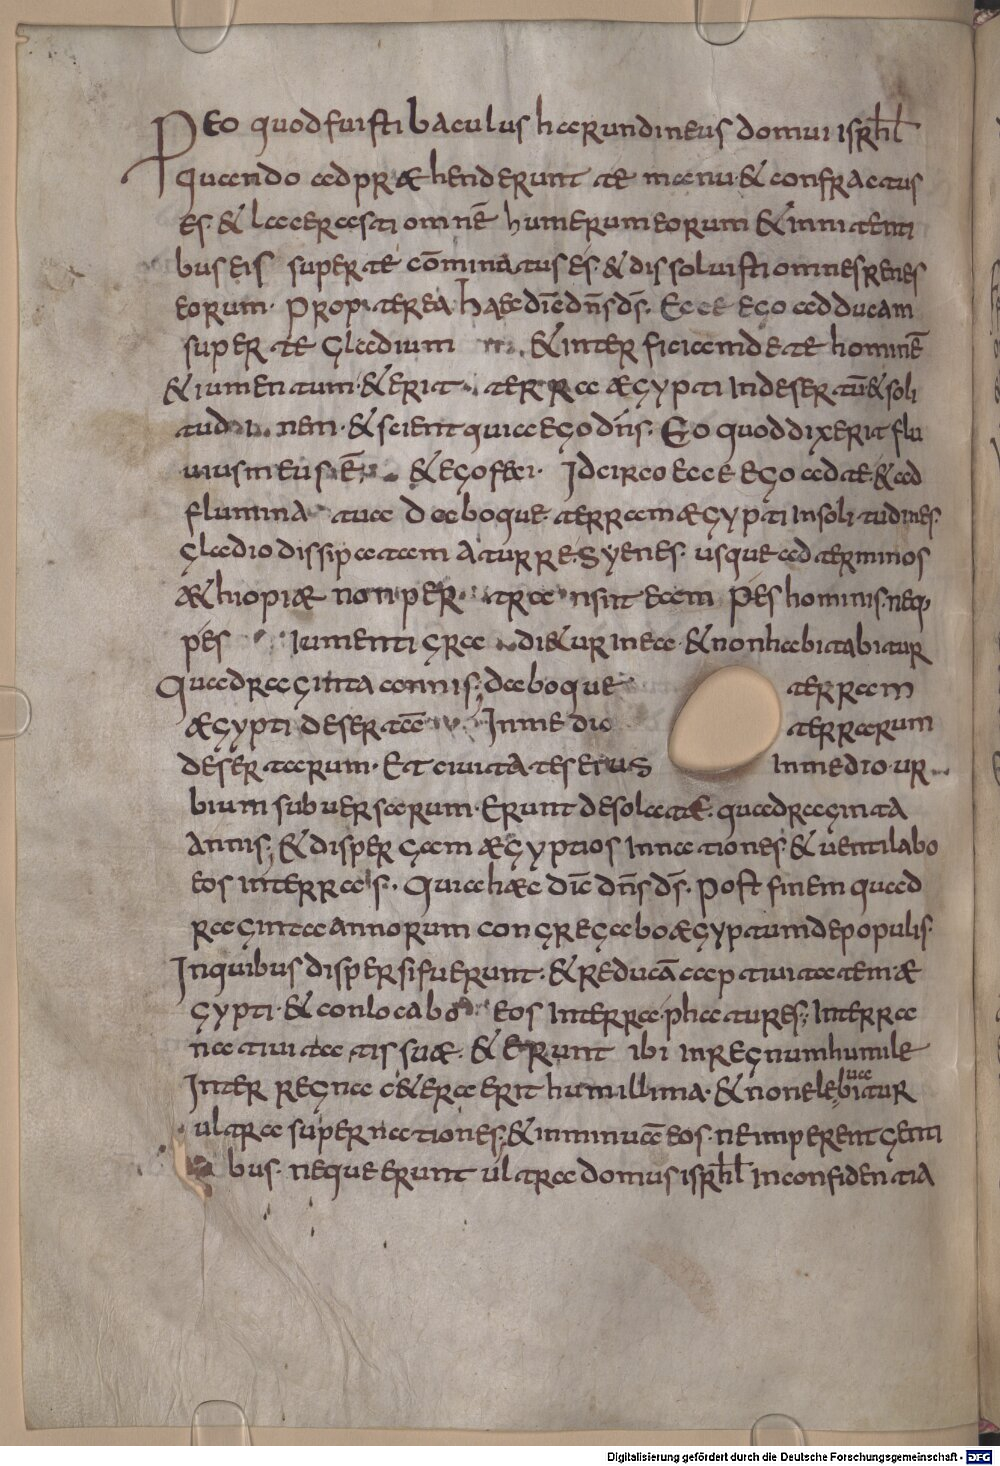 P EO quod fuisti baculus harundineus domui isrhl
Quando adpræhenderunt te manu· & confractus
es· & lacerasti omnē humerum eorum & innitenti
bus eis super te cōminatus es· & dissoluisti omnes renes
eorum· Propterea haec diē dn̄s ds̄. Ecce ego adducam
super te gladium & interficiam de te hominē
& iumentum· & erit terra ægypti in desertū & soli
tudinem· & scient quia ego dn̄s· Eo quod dixerit flu
uius meus ē & ego feci· Idcirco ecce ego ad te· & ad
flumina tua daboque· terram ægypti in solitudines·
gladio dissipatam a turre· syenes· usque ad terminos
æthiopiæ non pertransint eam pes hominis· neq·
pes iumenti gradi&ur in ea· & non habitabitur
Quadraginta annis; daboque terram
ægypti desertā In medio terrarum
desertarum· Et ciuitates eius In medio ur
bium subuersarum· Erunt desolatæ· quadraginta
annis; & dispergam ægyptios in nationes· & uentilabo
eos in terras· Quia hæc diē dn̄s ds̄. Post finem quad
raginta annorum congregabo ægyptum de populis·
In quibus dispersi fuerunt· & reducā captiuitatem æ
gypti· & conlocabo eos In terra· phatures; In terra
natiuitatis suæ· & erunt ibi in regnum humile
Inter regna c&era erit humillima· & non eleuabitur
ultra super nationes; & inminuā eos· ne imperent genti
bus· neque erunt ultra domus isrhl In confidentia
Digitalisierung gefördert durch die Deutsche Forschungsgemeinschaft - DFG